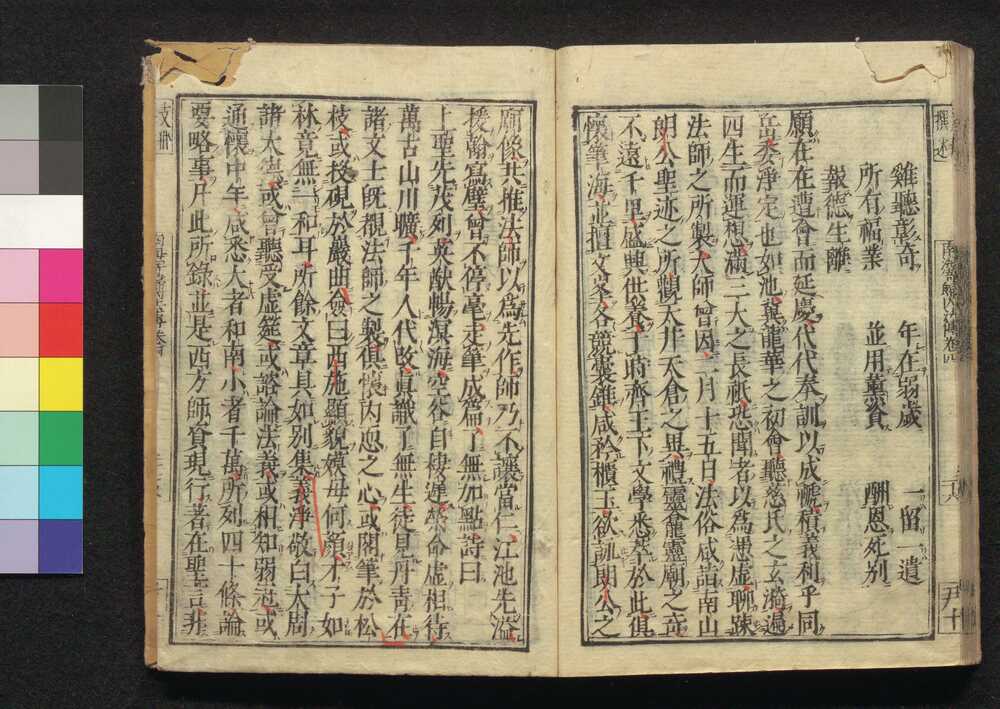 雖聽彰奇　年在弱歲　一留一遺
所有福業　並用薰資　酬恩死別
報德生離
願在在遭會而延慶代代奉訓以成禠積義利乎同
岳委淨定也如池冀龍華之初會聽慈氏之玄漪遍
四生而運想滿三大之長祇恐聞者以為憑虛聊疎
法師之所製大師曾因二月十五日法俗咸詣南山
朗公聖迹之所觀天井天倉之異禮靈龕靈廟之奇
不遠千里盛興供養于時齊王下文學悉萃於此俱
懷筆海並擅文峯各競囊錐咸矜櫃玉欲詠朗公之
廟像共推法師以為先作師乃不讓當仁江池先溢
援翰寫壁曾不停毫走筆成篇了無加點詩曰
上聖先茂列英猷暢溟海空谷自棲遲榮命虛相待
萬古山川曠千年人代改眞識了無生徒見丹青在
諸文士既覩法師之製俱懷內恧之心或閣筆於松
枝或投硯於巖曲僉曰西施顯貌嫫母何顏才子如
林竟無一和耳所餘文章具如別集義淨敬白大周
諸大德或曾聽受虛筵或諮論法義或相知弱冠或
通懷中年咸悉大者和南小者千萬所列四十條論
要略事凡此所錄並是西方師資現行著在聖言非